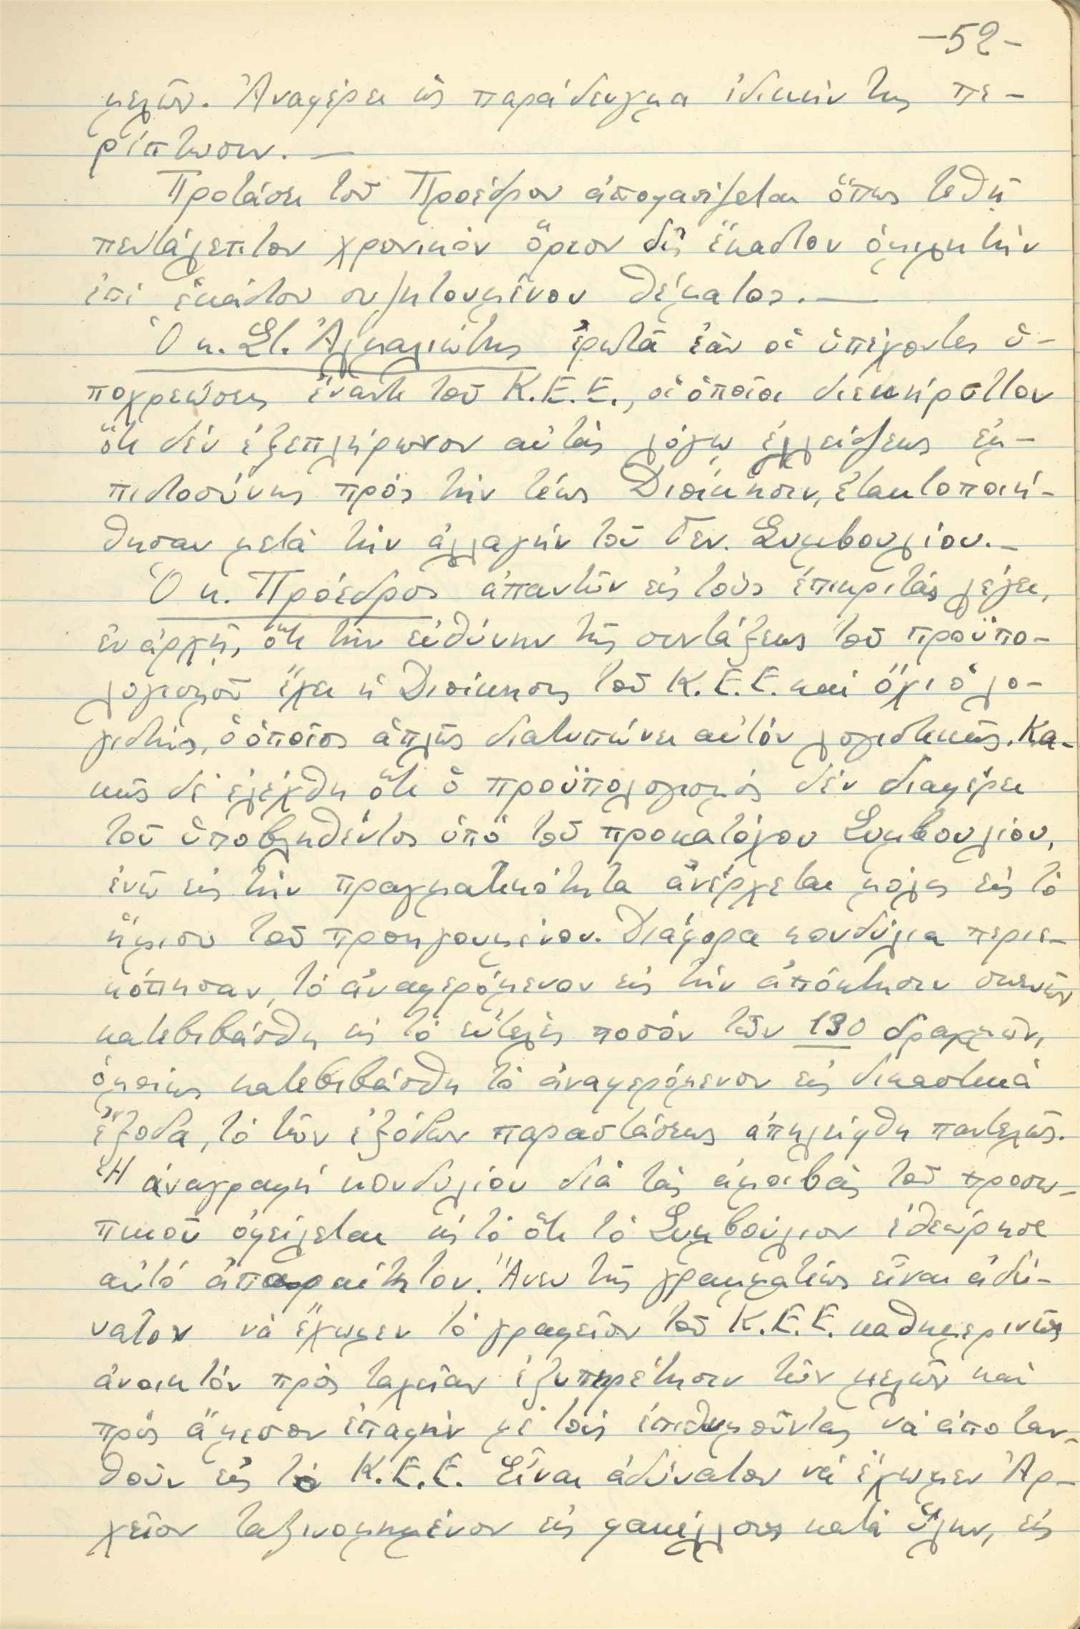 -52-
μελῶν. Ἀναφέρει ὡς παράδειγμα ἰδικήν της πε-
ρίπτωσιν.—
Προτάσει τοῦ Προέδρου ἀποφασίζεται ὅπως τεθῇ
πεντάλεπτον χρονικόν ὅριον δι' ἕκαστον ὁμιλητήν
ἐπί ἑκάστου συζητουμένου θέματος.—
Ὁ κ. Στ. Ἀλμαλιώτης ἐρωτᾶ ἐάν οἱ ὑπέχοντες ὑ-
ποχρεώσεις ἔναντι τοῦ Κ.Ε.Ε., οἱ ὁποῖοι διεκήρυττον
ὅτι δέν ἐξεπλήρωνον αὐτάς λόγῳ ἐλλείψεως ἐμ-
πιστοσύνης πρός τήν τέως Διοίκησιν, ἐτακτοποιή-
θησαν μετά τήν ἀλλαγήν τοῦ Γεν. Συμβουλίου.—
Ὁ κ. Πρόεδρος ἀπαντῶν εἰς τούς ἐπικριτάς λέγει,
ἐν ἀρχῇ, ὅτι τήν εὐθύνην τῆς συντάξεως τοῦ προϋπο-
λογισμοῦ ἔχει ἡ Διοίκησις τοῦ Κ.Ε.Ε. καί ὄχι ὁ λο-
γιστής, ὁ ὁποῖος ἁπλῶς διατυπώνει αὐτόν λογιστικῶς. Κα-
κῶς δέ ἐλέχθη ὅτι ὁ προϋπολογισμός δέν διαφέρει
τοῦ ὑποβληθέντος ὑπό τοῦ προκατόχου Συμβουλίου,
ἐνῶ εἰς τήν πραγματικότητα ἀνέρχεται μόλις εἰς τό
ἥμισυ τοῦ προηγουμένου. Διάφορα κονδύλια περιε-
κόπησαν, τό ἀναφερόμενον εἰς τήν ἀπόκτησιν σκευῶν
κατεβιβάσθη εἰς τό εὐτελές ποσόν τῶν 190 δραχμῶν,
ὁμοίως κατεβιβάσθη τό ἀναφερόμενον εἰς δικαστικά
ἔξοδα, τό τῶν ἐξόδων παραστάσεως ἀπηλείφθη παντελῶς.
Ἡ ἀναγραφή κονδυλίου διά τάς ἀμοιβάς τοῦ προσω-
πικοῦ ὀφείλεται εἰς τό ὅτι τό Συμβούλιον ἐθεώρησε
αὐτό ἀπαραίτητον. Ἄνευ τῆς γραμματέως εἶναι ἀδύ-
νατον νά ἔχωμεν τό γραφεῖον τοῦ Κ.Ε.Ε. καθημερινῶς
ἀνοικτόν πρός ταχεῖαν ἐξυπηρέτησιν τῶν μελῶν καί
πρός ἄμεσον ἐπαφήν μέ τούς ἐπιθυμοῦντας νά ἀποταν-
θοῦν εἰς τό Κ.Ε.Ε. Εἶναι ἀδύνατον νά ἔχωμεν Ἀρ-
χεῖον ταξινομημένον εἰς φακέλλους κατά ὕλην, εἰς